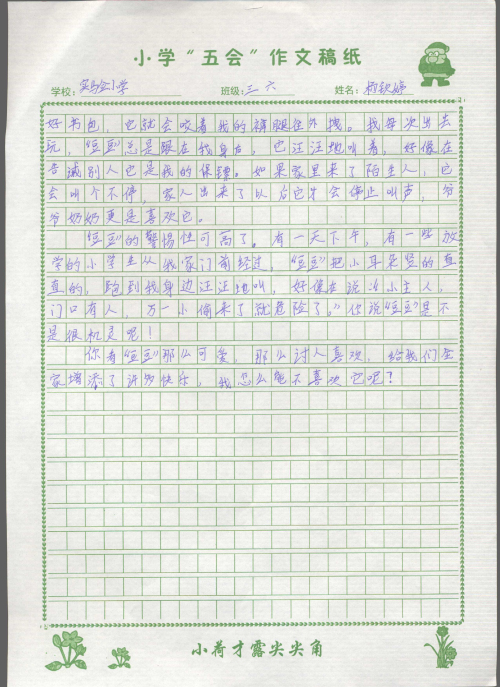 小学“五会”作文稿纸
学校：实马会小学 班级：三 六 姓名：
好书包，它就会咬着我的裤腿往外拽。我每次出去
玩，“豆豆”总是跟在我身后，它汪汪地叫着，好像在
告诫别人它是我的保镖。如果家里来了陌生人，它
会叫个不停，家人出来了以后它才会停止叫声，爷
爷奶奶更是喜欢它。
“豆豆”的警惕性可高了。有一天下午，有一些放
学的小学生从我家门前经过，“豆豆”把小耳朵竖的直
直的，跑到我身边汪汪地叫，好像在说：“小主人，
门口有人，万一小偷来了就危险了。”你说“豆豆”是不
是很机灵呢！
你看“豆豆”那么可爱，那么讨人喜欢，给我们全
家增添了许多快乐，我怎么能不喜欢它呢？
小荷才露尖尖角